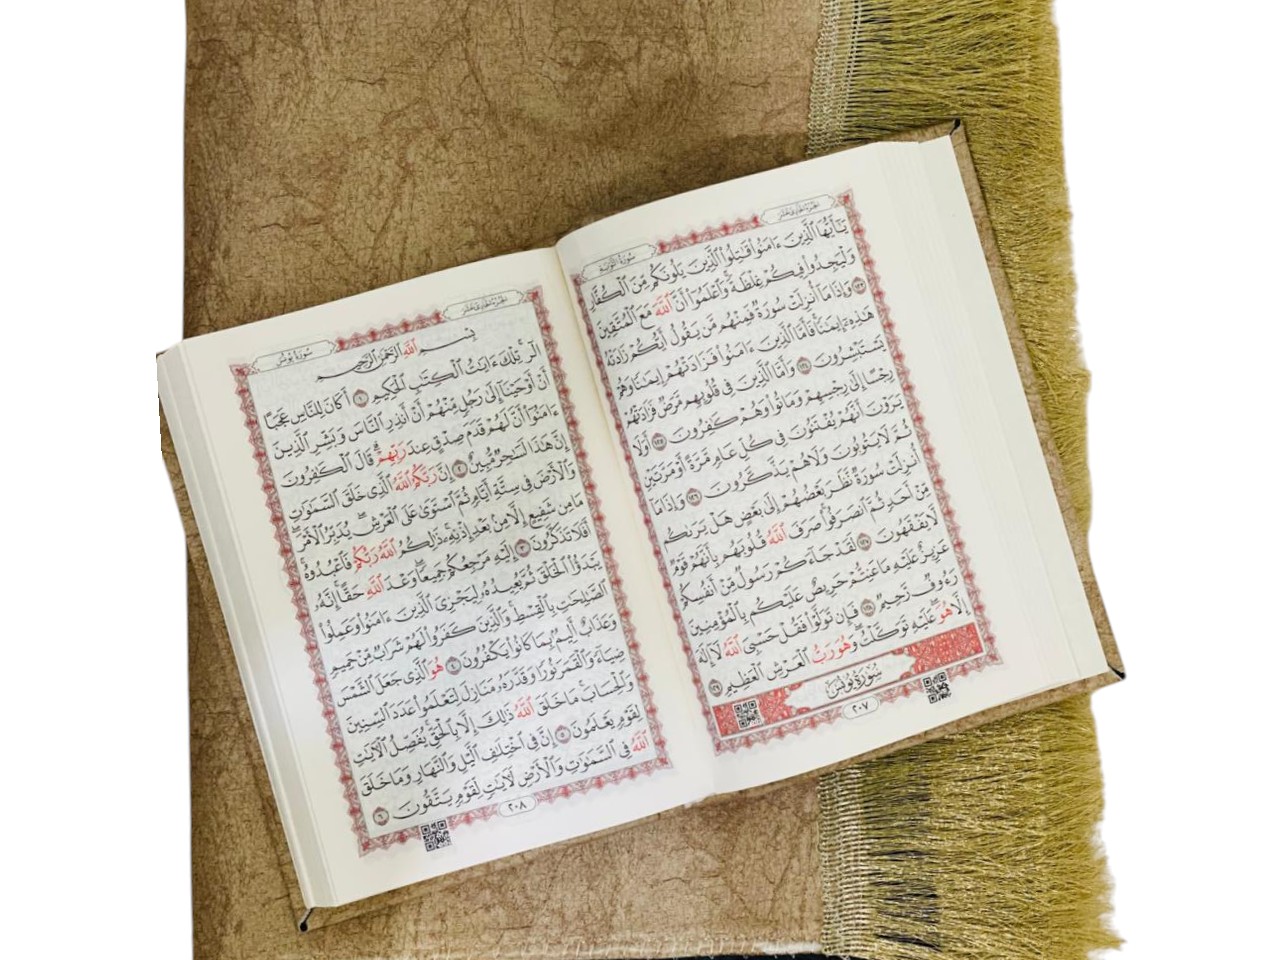 الجزء الحادي عشر
سورة التوبة
يَٰٓأَيُّهَا ٱلَّذِينَ ءَامَنُواْ قَٰتِلُواْ ٱلَّذِينَ يَلُونَكُم مِّنَ ٱلْكُفَّارِ
وَلْيَجِدُواْ فِيكُمْ غِلْظَةً وَٱعْلَمُوٓاْ أَنَّ ٱللَّهَ مَعَ ٱلْمُتَّقِينَ
١٢٣ وَإِذَا مَآ أُنزِلَتْ سُورَةٌ فَمِنْهُم مَّن يَقُولُ أَيُّكُمْ زَادَتْهُ
هَٰذِهِۦٓ إِيمَٰنًا فَأَمَّا ٱلَّذِينَ ءَامَنُواْ فَزَادَتْهُمْ إِيمَٰنًا وَهُمْ
يَسْتَبْشِرُونَ ١٢٤ وَأَمَّا ٱلَّذِينَ فِى قُلُوبِهِم مَّرَضٌ فَزَادَتْهُمْ
رِجْسًا إِلَىٰ رِجْسِهِمْ وَمَاتُواْ وَهُمْ كَٰفِرُونَ ١٢٥ أَوَلَا
يَرَوْنَ أَنَّهُمْ يُفْتَنُونَ فِى كُلِّ عَامٍ مَّرَّةً أَوْ مَرَّتَيْنِ
ثُمَّ لَا يَتُوبُونَ وَلَا هُمْ يَذَّكَّرُونَ ١٢٦ وَإِذَا مَآ
أُنزِلَتْ سُورَةٌ نَّظَرَ بَعْضُهُمْ إِلَىٰ بَعْضٍ هَلْ يَرَىٰكُم
مِّنْ أَحَدٍ ثُمَّ ٱنصَرَفُواْ صَرَفَ ٱللَّهُ قُلُوبَهُم بِأَنَّهُمْ قَوْمٌ
لَّا يَفْقَهُونَ ١٢٧ لَقَدْ جَآءَكُمْ رَسُولٌ مِّنْ أَنفُسِكُمْ
عَزِيزٌ عَلَيْهِ مَا عَنِتُّمْ حَرِيصٌ عَلَيْكُم بِٱلْمُؤْمِنِينَ
رَءُوفٌ رَّحِيمٌ ١٢٨ فَإِن تَوَلَّوْاْ فَقُلْ حَسْبِىَ ٱللَّهُ لَآ إِلَٰهَ
إِلَّا هُوَ عَلَيْهِ تَوَكَّلْتُ وَهُوَ رَبُّ ٱلْعَرْشِ ٱلْعَظِيمِ ١٢٩
سُورَةُ يُونُسَ
٢٠٧
الجزء الحادي عشر
سورة يونس
بِسْمِ ٱللَّهِ ٱلرَّحْمَٰنِ ٱلرَّحِيمِ
الٓر تِلْكَ ءَايَٰتُ ٱلْكِتَٰبِ ٱلْحَكِيمِ ١ أَكَانَ لِلنَّاسِ عَجَبًا
أَنْ أَوْحَيْنَآ إِلَىٰ رَجُلٍ مِّنْهُمْ أَنْ أَنذِرِ ٱلنَّاسَ وَبَشِّرِ ٱلَّذِينَ
ءَامَنُوٓاْ أَنَّ لَهُمْ قَدَمَ صِدْقٍ عِندَ رَبِّهِمْ قَالَ ٱلْكَٰفِرُونَ
إِنَّ هَٰذَا لَسَٰحِرٌ مُّبِينٌ ٢ إِنَّ رَبَّكُمُ ٱللَّهُ ٱلَّذِى خَلَقَ ٱلسَّمَٰوَٰتِ
وَٱلْأَرْضَ فِى سِتَّةِ أَيَّامٍ ثُمَّ ٱسْتَوَىٰ عَلَى ٱلْعَرْشِ يُدَبِّرُ ٱلْأَمْرَ
مَا مِن شَفِيعٍ إِلَّا مِنۢ بَعْدِ إِذْنِهِۦ ذَٰلِكُمُ ٱللَّهُ رَبُّكُمْ فَٱعْبُدُوهُ
أَفَلَا تَذَكَّرُونَ ٣ إِلَيْهِ مَرْجِعُكُمْ جَمِيعًا وَعْدَ ٱللَّهِ حَقًّا إِنَّهُۥ
يَبْدَؤُاْ ٱلْخَلْقَ ثُمَّ يُعِيدُهُۥ لِيَجْزِىَ ٱلَّذِينَ ءَامَنُواْ وَعَمِلُواْ
ٱلصَّٰلِحَٰتِ بِٱلْقِسْطِ وَٱلَّذِينَ كَفَرُواْ لَهُمْ شَرَابٌ مِّنْ حَمِيمٍ
وَعَذَابٌ أَلِيمٌۢ بِمَا كَانُواْ يَكْفُرُونَ ٤ هُوَ ٱلَّذِى جَعَلَ ٱلشَّمْسَ
ضِيَآءً وَٱلْقَمَرَ نُورًا وَقَدَّرَهُۥ مَنَازِلَ لِتَعْلَمُواْ عَدَدَ ٱلسِّنِينَ
وَٱلْحِسَابَ مَا خَلَقَ ٱللَّهُ ذَٰلِكَ إِلَّا بِٱلْحَقِّ يُفَصِّلُ ٱلْءَايَٰتِ
لِقَوْمٍ يَعْلَمُونَ ٥ إِنَّ فِى ٱخْتِلَٰفِ ٱلَّيْلِ وَٱلنَّهَارِ وَمَا خَلَقَ
ٱللَّهُ فِى ٱلسَّمَٰوَٰتِ وَٱلْأَرْضِ لَءَايَٰتٍ لِّقَوْمٍ يَتَّقُونَ ٦
٢٠٨